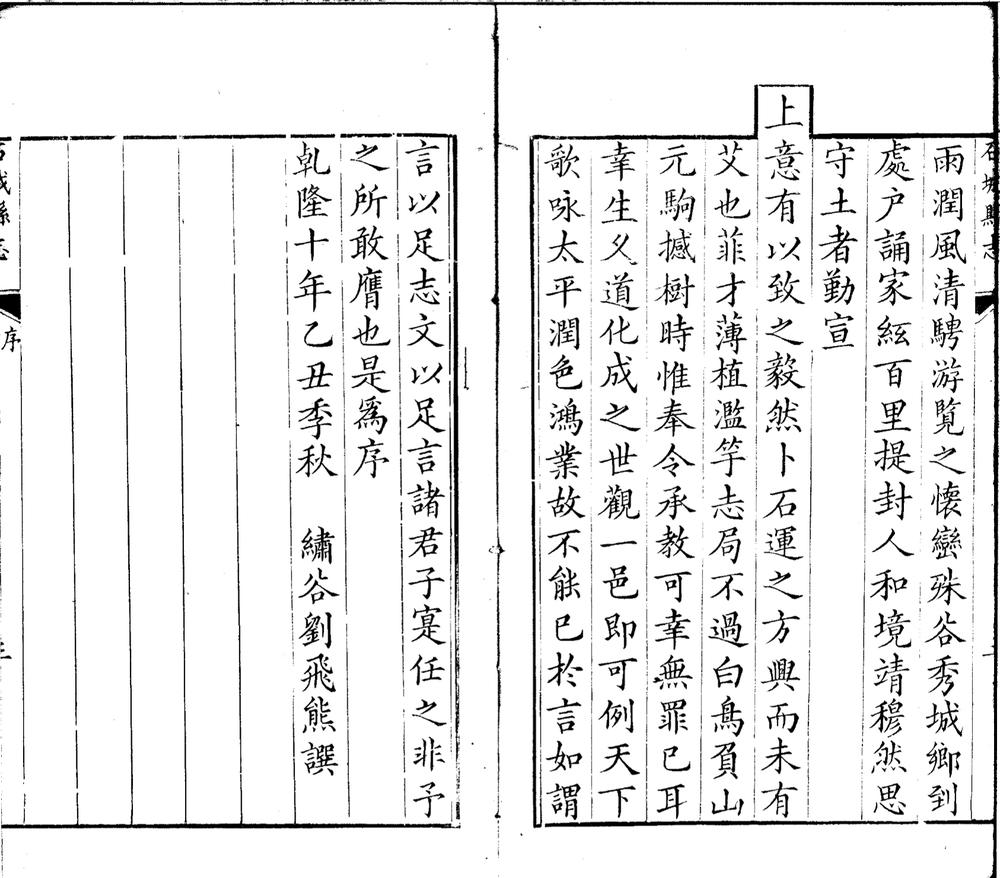 石城縣志
雨潤風清騁游覽之懷巒殊谷秀城鄉到
處户誦家絃百里提封人和境靖穆然思
守土者勤宣
上意有以致之毅然卜石運之方興而未有
艾也菲才薄植濫竽志局不過白鳥負山
元駒撼樹時惟奉令承教可幸無罪已耳
幸生乆道化成之世觀一邑即可例天下
歌咏太平潤色鴻業故不能已於言如謂
言以足志文以足言諸君子寔任之非予
之所敢膺也是爲序
乹隆十年乙丑季秋　繡谷劉飛熊譔
石城縣志
序